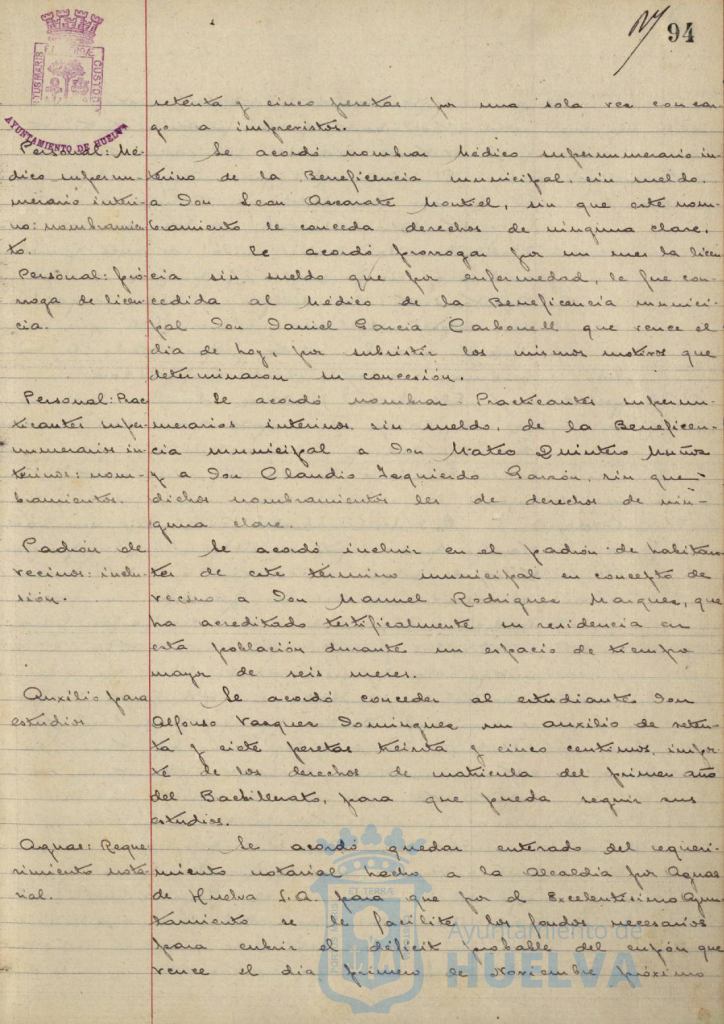 94
PORTUS MARIS ET TERRAE CUSTODIA
AYUNTAMIENTO DE HUELVA
setenta y cinco pesetas por una sola vez con car-
go a imprevistos.
Personal: Mé-
dico supernu-
merario interi-
no: nombramien-
to.
Se acordó nombrar Médico supernumerario in-
terino de la Beneficencia municipal, sin sueldo,
a Don Leon Ascarate Montiel, sin que este nom-
bramiento le conceda derechos de ninguna clase.
Personal: pró-
rroga de licen-
cia.
Se acordó prorrogar por un mes la licen-
cia sin sueldo que por enfermedad, le fue con-
cedida al Médico de la Beneficencia munici-
pal Don Daniel Garcia Carbonell que vence el
dia de hoy, por subsistir los mismos motivos que
determinaron su concesión.
Personal: Prac-
ticantes super-
numerarios in-
terinos: nom-
bramientos.
Se acordó nombrar Practicantes supernu-
merarios interinos, sin sueldo, de la Beneficen-
cia municipal a Don Mateo Quintero Muñoz
y a Don Claudio Izquierdo Garzón, sin que
dichos nombramientos les de derechos de nin-
guna clase.
Padrón de
vecinos: inclu-
sión.
Se acordó incluir en el padrón de habitan-
tes de este término municipal en concepto de
vecino a Don Manuel Rodriguez Marquez, que
ha acreditado testificalmente su residencia en
esta población durante un espacio de tiempo
mayor de seis meses.
Auxilio para
estudios
Se acordó conceder al estudiante Don
Alfonso Vazquez Dominguez un auxilio de seten-
ta y siete pesetas treinta y cinco centimos, impor-
te de los derechos de matricula del primer año
del Bachillerato, para que pueda seguir sus
estudios.
Aguas: Reque-
rimiento nota-
rial.
Se acordó quedar enterado del requeri-
miento notarial hecho a la Alcaldia por Aguas
de Huelva S.A. para que por el Excelentísimo Ayun-
tamiento se le facilite los fondos necesarios
para cubrir el déficit probable del cupón que
vence el dia primero de Noviembre próximo
Ayuntamiento de
HUELVA